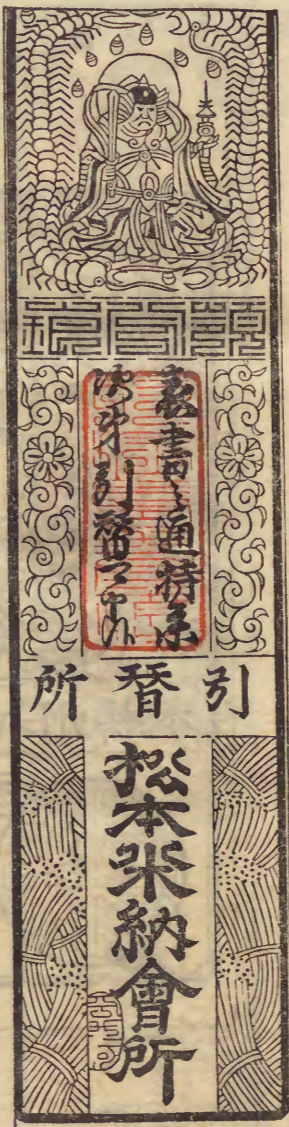 表書之通持参
次第引替可申候
引替所
松本米納會所